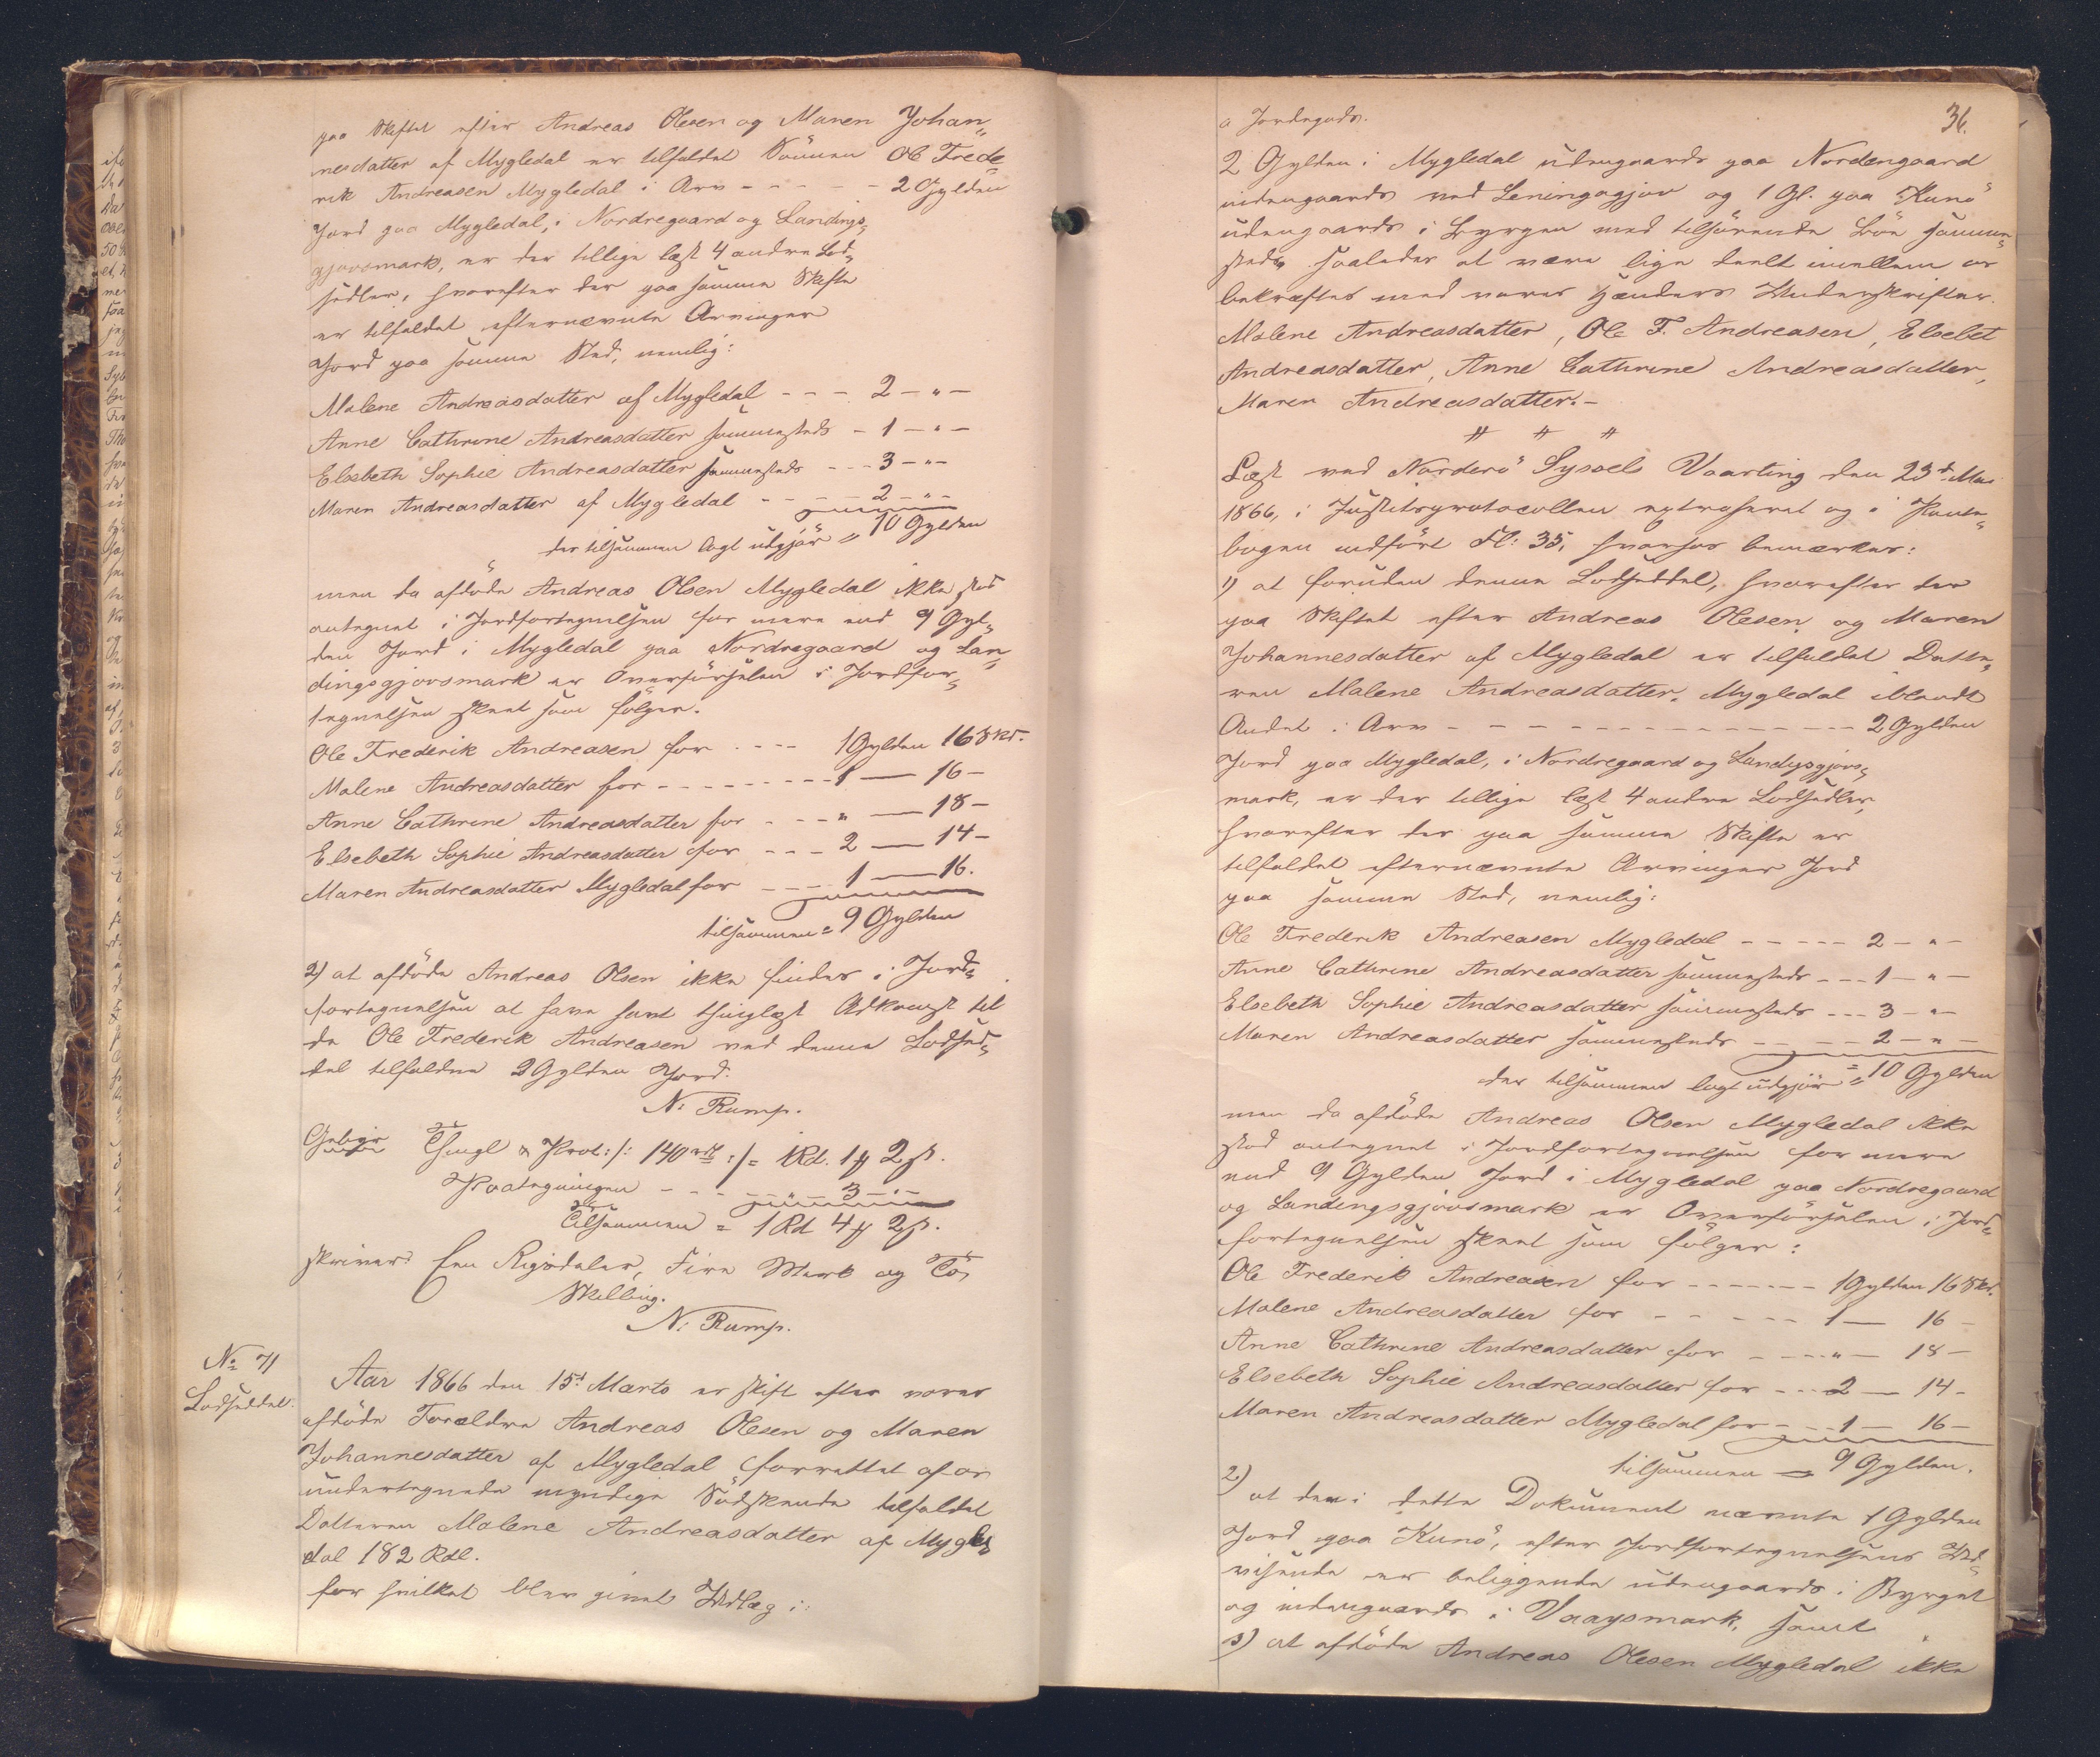 paa Skiftet efter Andreas Olesen og Maren Johan„
nesdatter af Mygledal er tilfaldet Sönnen Ole Frede„
rik Andreasen Mygledal i Arv - - - - - 2 Gylden
Jord paa Mygledal, i Nordregaard og Landings„
gjovsmark, er der tillige læst 4 andre Lod„
sedler, hvorefter der paa samme Skifte
er tilfaldet efternævnte Arvinger
Jord paa samme Sted, nemlig:
Malene Andreasdatter af Mygledal - - - 2 - „ -
Anne Cathrine Andreasdatter sammesteds - 1 - „ -
Elsebeth Sophie Andreasdatter sammesteds - - - 3 - „ -
Maren Andreasdatter af Mygledal - - - - 2 - „ -
der tilsammen lagt udgjör = 10 Gylden
men da afdöde Andreas Olsen Mygledal ikke stod
antegnet i Jordfortegnelsen for mere end 9 Gyl„
den Jord i Mygledal paa Nordregaard og Lan„
dingsgjovsmark er Overförselen i Jordfor„
tegnelsen skeet som fölger.
Ole Frederik Andreasen for - - - - 1 Gylden 16 Skd.
Malene Andreasdatter for - - - - - - - - 1 — 16 -
Anne Cathrine Andreasdatter for - - - „ — 18 -
Elsebeth Sophie Andreasdatter for - - - 2 — 14 -
Maren Andreasdatter Mygledal for - - - 1 — 16.
tilsammen = 9 Gylden
2) at afdöde Andreas Olsen ikke findes i Jord„
fortegnelsen at have havt thinglæst Adkomst til
de Ole Frederik Andreasen ved denne Lodsed„
del tilfaldne 2 Gylden Jord.
N: Rump.
Gebyr Thingl & Prot: /: 140 :/ = 1 Rd. 1 2 s.
Paategningen - - - - „ - 3 - „ -
Tilsammen = 1 Rd 4 2 s.
skriver Een Rigsdaler, Fire Mark og To
Skilling.
N: Rump.
No 71
Lodseddel.
Aar 1866 den 15d Marts er skift efter vores
afdöde Forældre Andreas Olesen og Maren
Johannesdatter af Mygledal forrettet af os
undertegnede myndige Södskende tilfaldet
Datteren Malene Andreasdatter af Mygle„
dal 182 Rdl.
for hvilket blev givet Udlæg i:
36.
a Jordegods.
2 Gylden i Mygledal udengaards paa Nordengaard
indengaards ved Leningsgjov og 1 Gl. paa Kunö
udengaards i Byrgen med tilhörende Böe samme„
steds saaledes at være lige deelt imellem os
bekræftes med vores Hænders Underskrifter.
Malene Andreasdatter, Ole F. Andreasen, Elsebet
Andreasdatter, Anne Cathrine Andreasdatter,
Maren Andreasdatter. -
# # #
Læst ved Norderö Syssels Vaarting den 23d Mai
1866, i Justitsprotocollen extraheret og i Pante„
bogen indfört Fl: 35, hvorhos bemærkes:
1) at foruden denne Lodseddel, hvorefter der
paa Skiftet efter Andreas Olesen og Maren
Johannesdatter af Mygledal er tilfaldet Datte„
ren Malene Andreasdatter, Mygledal iblandt
Andet i Arv - - - - - - - - - - - - - - - - 2 Gylden
Jord paa Mygledal, i Nordregaard og Landingsgjovs„
mark, er der tillige læst 4 andre Lodsedler,
hvorefter der paa samme Skifte er
tilfaldet efternævnte Arvinger Jord
paa samme Sted, nemlig:
Ole Frederik Andreasen Mygledal - - - - - 2 - „ -
Anne Cathrine Andreasdatter sammesteds - - - 1 - „ -
Elsebeth Sophie Andreasdatter sammesteds - - - 3 - „ -
Maren Andreasdatter sammesteds - - - - 2 - „ -
der tilsammen lagt udgjör = 10 Gylden
men da afdöde Andreas Olsen Mygledal ikke
stod antegnet i Jordfortegnelsen for mere
end 9 Gylden Jord i Mygledal paa Nordregaard
og Landingsgjovsmark er Overförselen i Jord„
fortegnelsen skeet som fölger:
Ole Frederik Andreasen for - - - - - - - 1 Gylden 16 Skd.
Malene Andreasdatter for - - - - - 1 — 16 -
Anne Cathrine Andreasdatter for - - - - „ — 18 -
Elsebeth Sophie Andreasdatter for - - - 2 — 14 -
Maren Andreasdatter Mygledal for - - - 1 — 16 -
tilsammen = 9 Gylden.
2) at den i dette Dokument nævnte 1 Gylden
Jord paa Kunö, efter Jordfortegnelsens Ud„
visende er beliggende udengaards i Byrget
og indengaards i Vaagsmark, samt
3) at afdöde Andreas Olesen Mygledal ikke